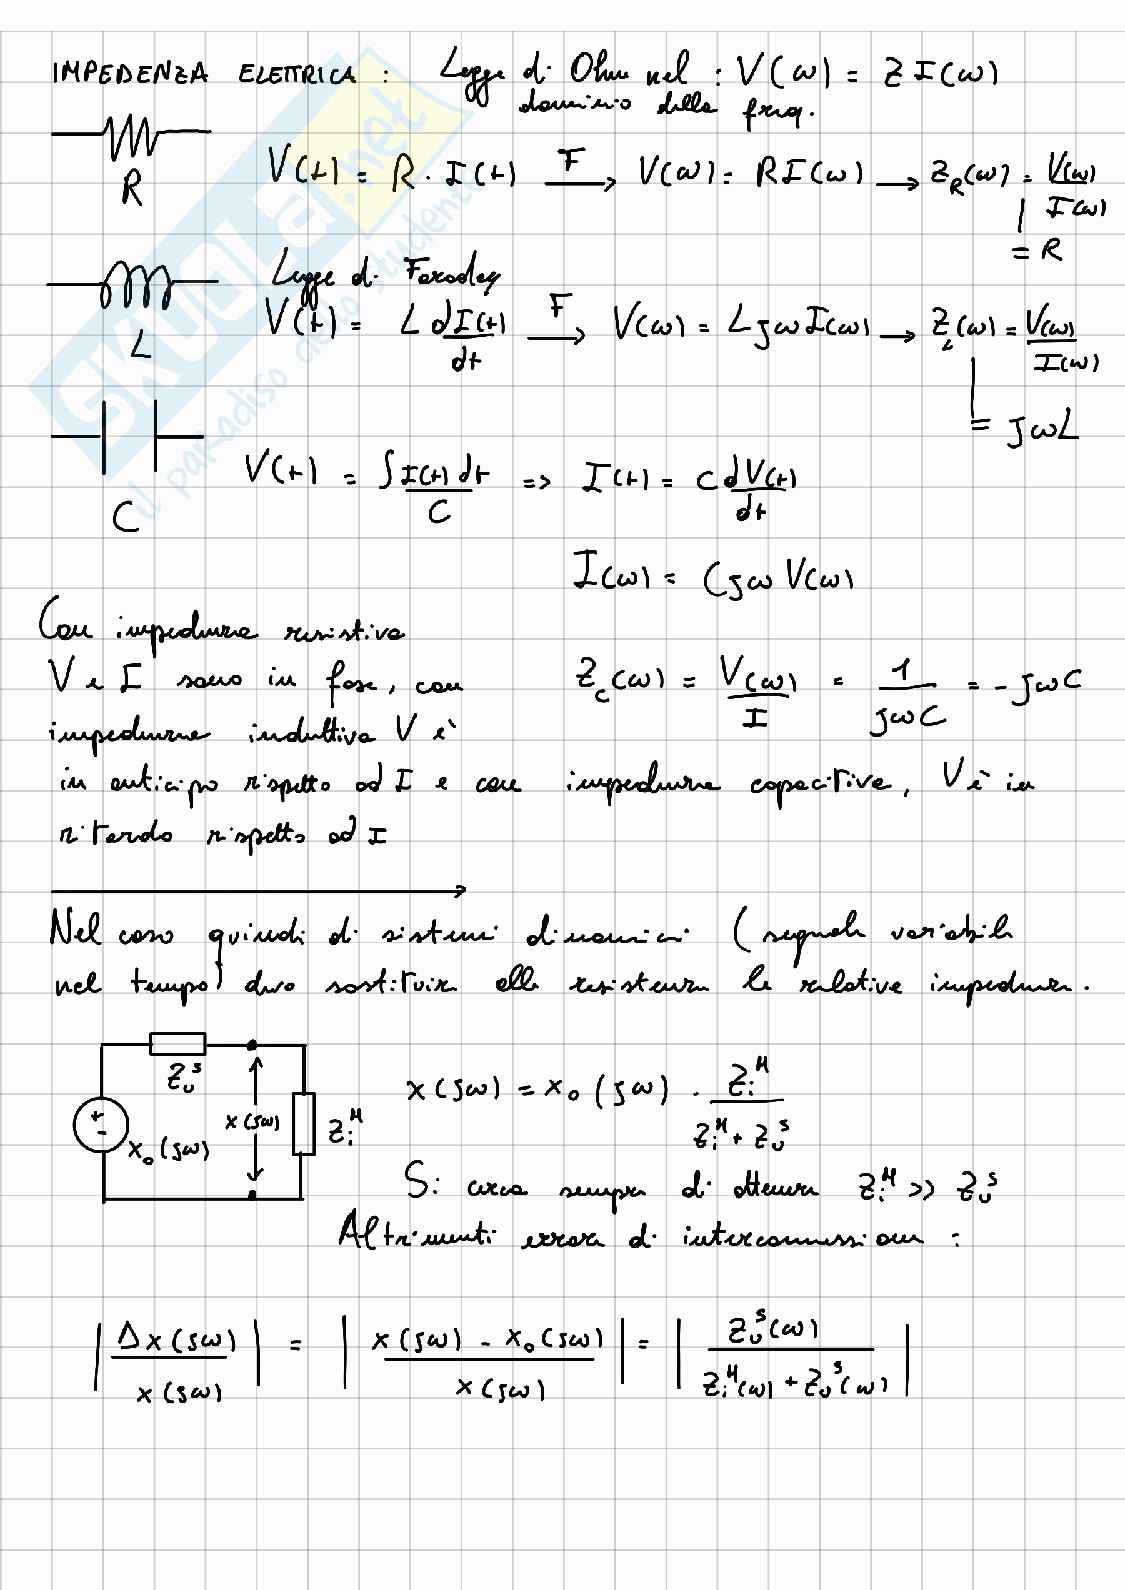 IMPEDENZA ELETTRICA : Legge di Ohm nel : V(ω) = Z I(ω)
dominio della freq.
R
V(t) = R · I(t) F→ V(ω) = R I(ω) → Z_R(ω) = V(ω)/I(ω)
= R
Legge di Faraday
L
V(t) = L dI(t)/dt F→ V(ω) = L jω I(ω) → Z_L(ω) = V(ω)/I(ω)
= jωL
C
V(t) = ∫I(t) dt/C => I(t) = C dV(t)/dt
I(ω) = C jω V(ω)
Con impedenza resistiva
V e I sono in fase, con
Z_C(ω) = V(ω)/I = 1/jωC = - jωC
impedenza induttiva V è
in anticipo rispetto ad I e con impedenza capacitiva, V è in
ritardo rispetto ad I
Nel caso quindi di sistemi dinamici (segnali variabili
nel tempo) devo sostituire alle resistenze le relative impedenze.
Z_u^s
x_0(jω)
x(jω)
Z_i^M
x(jω) = x_0(jω) · Z_i^M/Z_i^M + Z_u^s
Si cerca sempre di ottenere Z_i^M >> Z_u^s
Altrimenti errore di interconnessione :
|Δx(jω)/x(jω)| = |x(jω) - x_0(jω)/x(jω)| = |Z_u^s(ω)/Z_i^M(ω) + Z_u^s(ω)|
SKUOLA.net
il paradiso dello studente